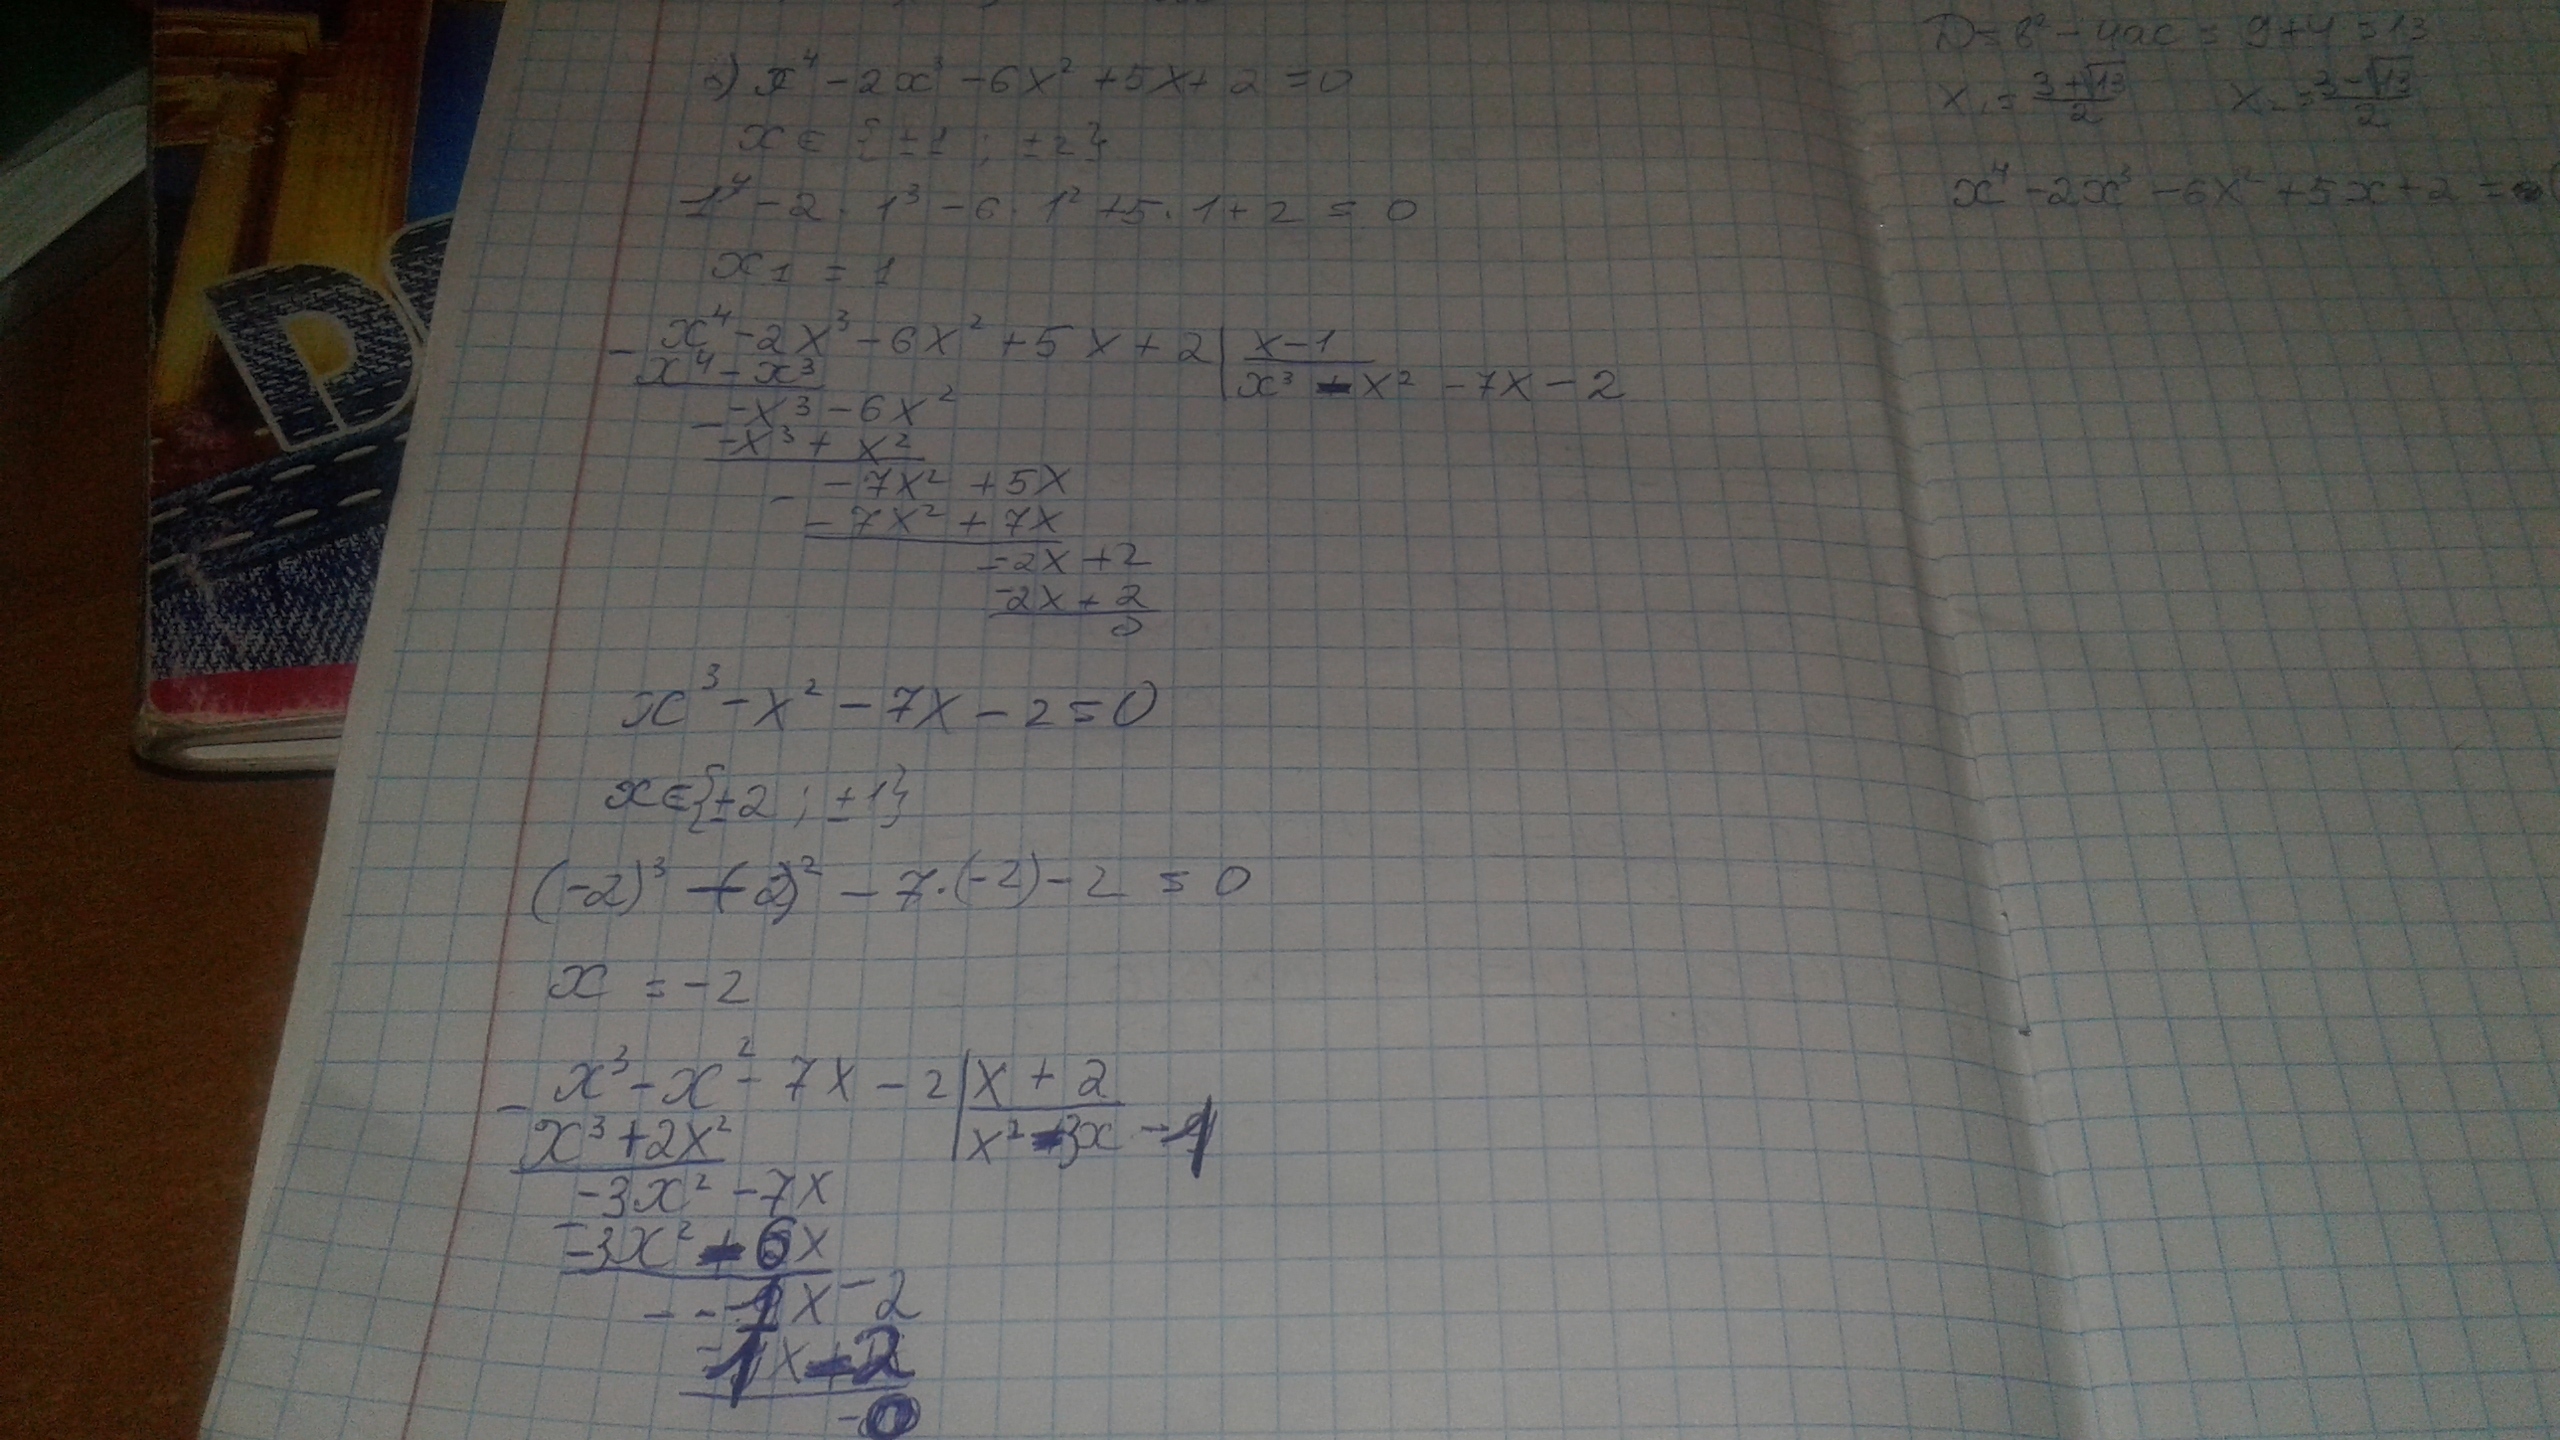 б) x⁴ - 2x³ - 6x² + 5x + 2 = 0
x ∈ {±1 ; ±2}
1⁴ - 2 · 1³ - 6 · 1² + 5 · 1 + 2 = 0
x₁ = 1
- x⁴ - 2x³ - 6x² + 5x + 2 | x - 1
x⁴ - x³ | x³ - x² - 7x - 2
- -x³ - 6x²
-x³ + x²
- -7x² + 5x
-7x² + 7x
-2x + 2
-2x + 2
0
x³ - x² - 7x - 2 = 0
x ∈ {±2 ; ±1}
(-2)³ - (-2)² - 7·(-2) - 2 = 0
x = -2
- x³ - x² - 7x - 2 | x + 2
x³ + 2x² | x² - 3x - 1
-3x² - 7x
- -3x² - 6x
- -1x - 2
-1x - 2
0
D = в² - 4ac = 9 + 4 = 13
x₁ = (3 + √13)/2 x₂ = (3 - √13)/2
x⁴ - 2x³ - 6x² + 5x + 2 =
D